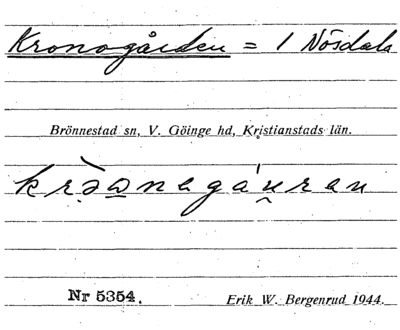 Kronogården = 1 Nösdala
Brönnestad sn, V. Göinge hd, Kristianstads län.
Nr 5354.
Erik W. Bergenrud 1944.